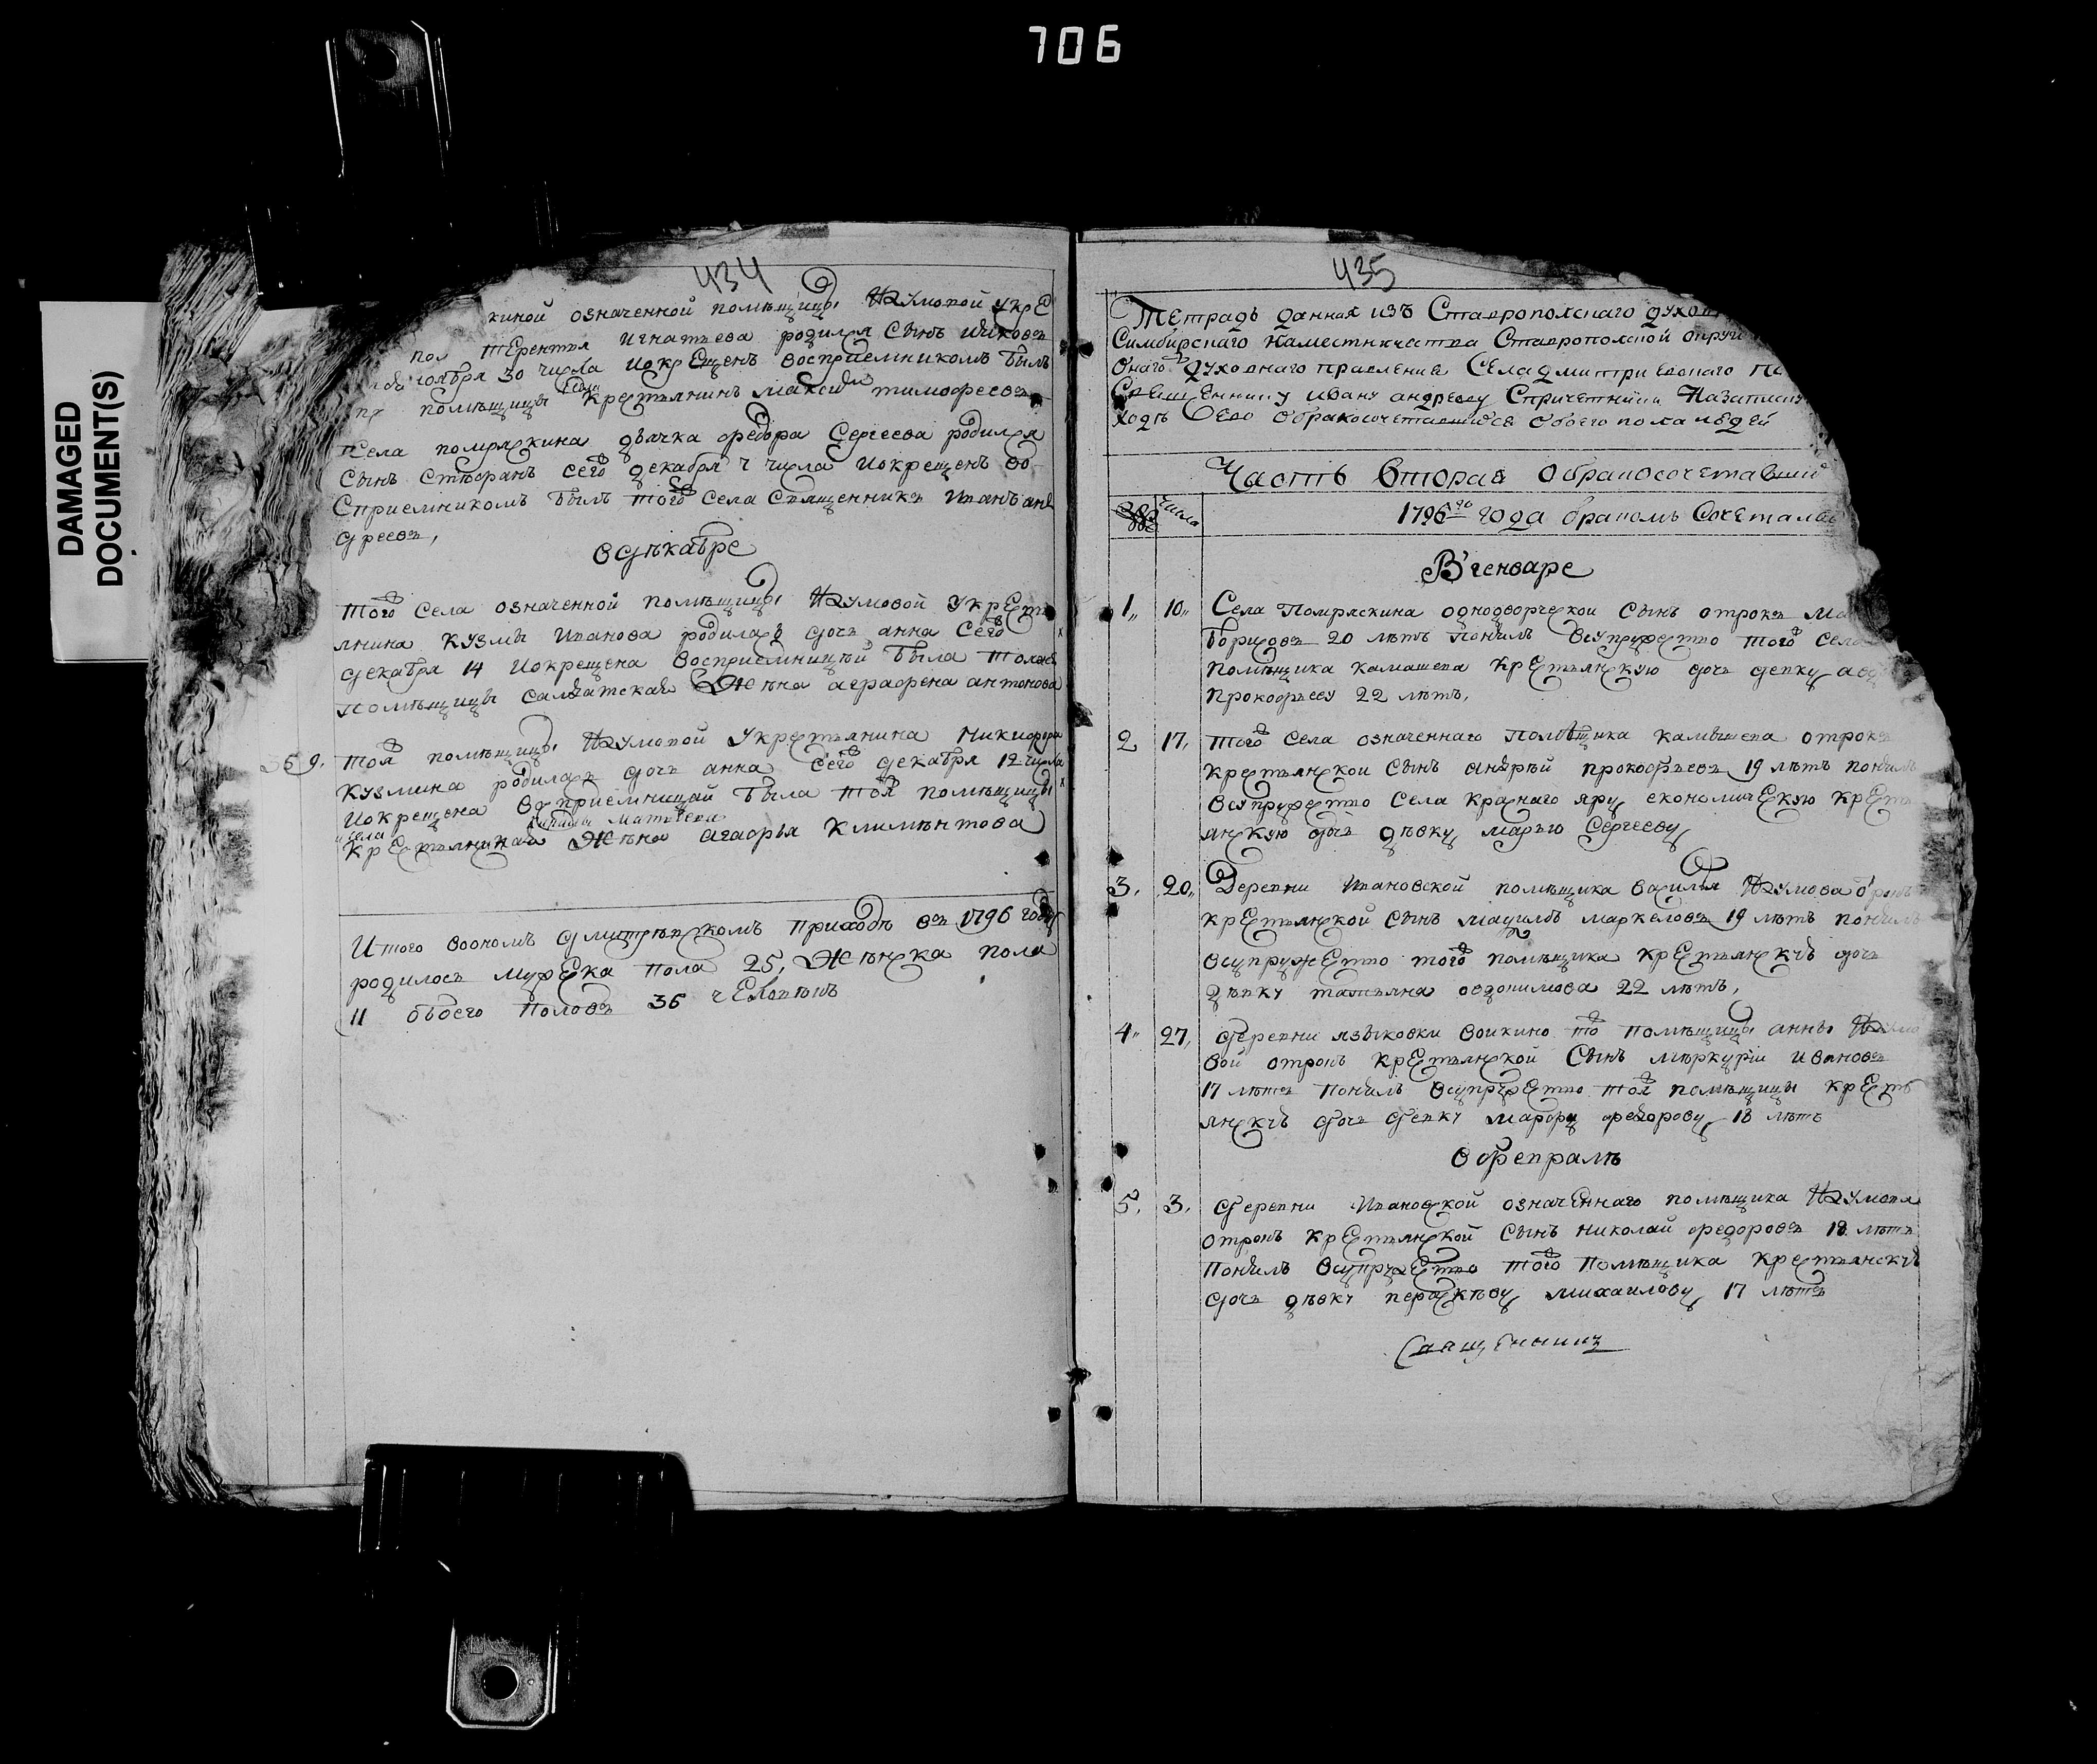 706
DAMAGED
DOCUMENT(S)
434
киной означенной помѣщицы Наумовой укре
Терентья Игнатьева родился сынъ Иаковъ
ноября 30 числа и окрещенъ восприемникомъ былъ
помѣщицы села крестьянинъ Максим тимофеевъ
села помряскина дьячка федора Сергеева родился
сынъ Стефанъ сего декабря 4 числа и окрещенъ во
сприемникомъ былъ того села священникъ Иванъ ан
дреевъ,
в декабре
того села означенной помѣщицы Наумовой у кресть
янина кузмы Иванова родилась дочь анна сего
декабря 14 и окрещена восприемницей была
помѣщицы жена аграфена антонова
9. той помѣщицы Наумовой у крестьянина Никифора
кузмина родилась дочь анна сего декабря 12 числа
и окрещена восприемницай была той помѣщицы
села Матвеева
крестьянина жена агафья климентова
Итого во ономъ дмитриевскомъ приходѣ въ 1796 году
родилось мужеска пола 25, женска пола
11 обоего половъ 36 человѣкъ
435
Тетрадь данная изъ Ставропольскаго духов
Симбирскаго наместничества Ставропольской округи
онаго духовнаго правления Села дмитриевскаго
Священнику ивану андрееву с причетники на записку
ходѣ о бракосочетавшихся обоего пола людей
Часть вторая о бракосочетавши
числа
1796го года бракомъ сочетались
В генваре
1,, 10,, Села Помряскина однодворческой сынъ отрокъ
борисовъ 20 лѣтъ понялъ в супружество того села
помѣщика камашева крестьянскую дочь девку
прокофьеву 22 лѣтъ,
2 17, того села означеннаго помѣщика отрокъ
крестьянской сынъ андрѣй прокофьевъ 19 лѣтъ понялъ
в супружество села краснаго яру економическую кресть
янскую дочь дѣвку марью Сергееву
3, 20,, Деревни Ивановской помѣщика василья Наумова отрокъ
крестьянской сынъ маркеловъ 19 лѣтъ понялъ
в супружество того помѣщика крестьянскую дочь
дѣвку татьяна 22 лѣтъ,
4,, 27, деревни языковки воикино то помѣщицы анны Наумо
вой отрокъ крестьянской сынъ мѣркурiи ивановъ
17 лѣтъ понялъ в супружество той помѣщицы кресть
янскую дочь девку марфу федорову 18 лѣтъ
в февралѣ
5, 3, деревни Ивановской означеннаго помѣщика Наумова
отрокъ крестьянской сынъ николай федоровъ 18 лѣтъ
понялъ в супружество того помѣщика крестьянскую
дочь дѣвку михаилову 17 лѣтъ
священникъ